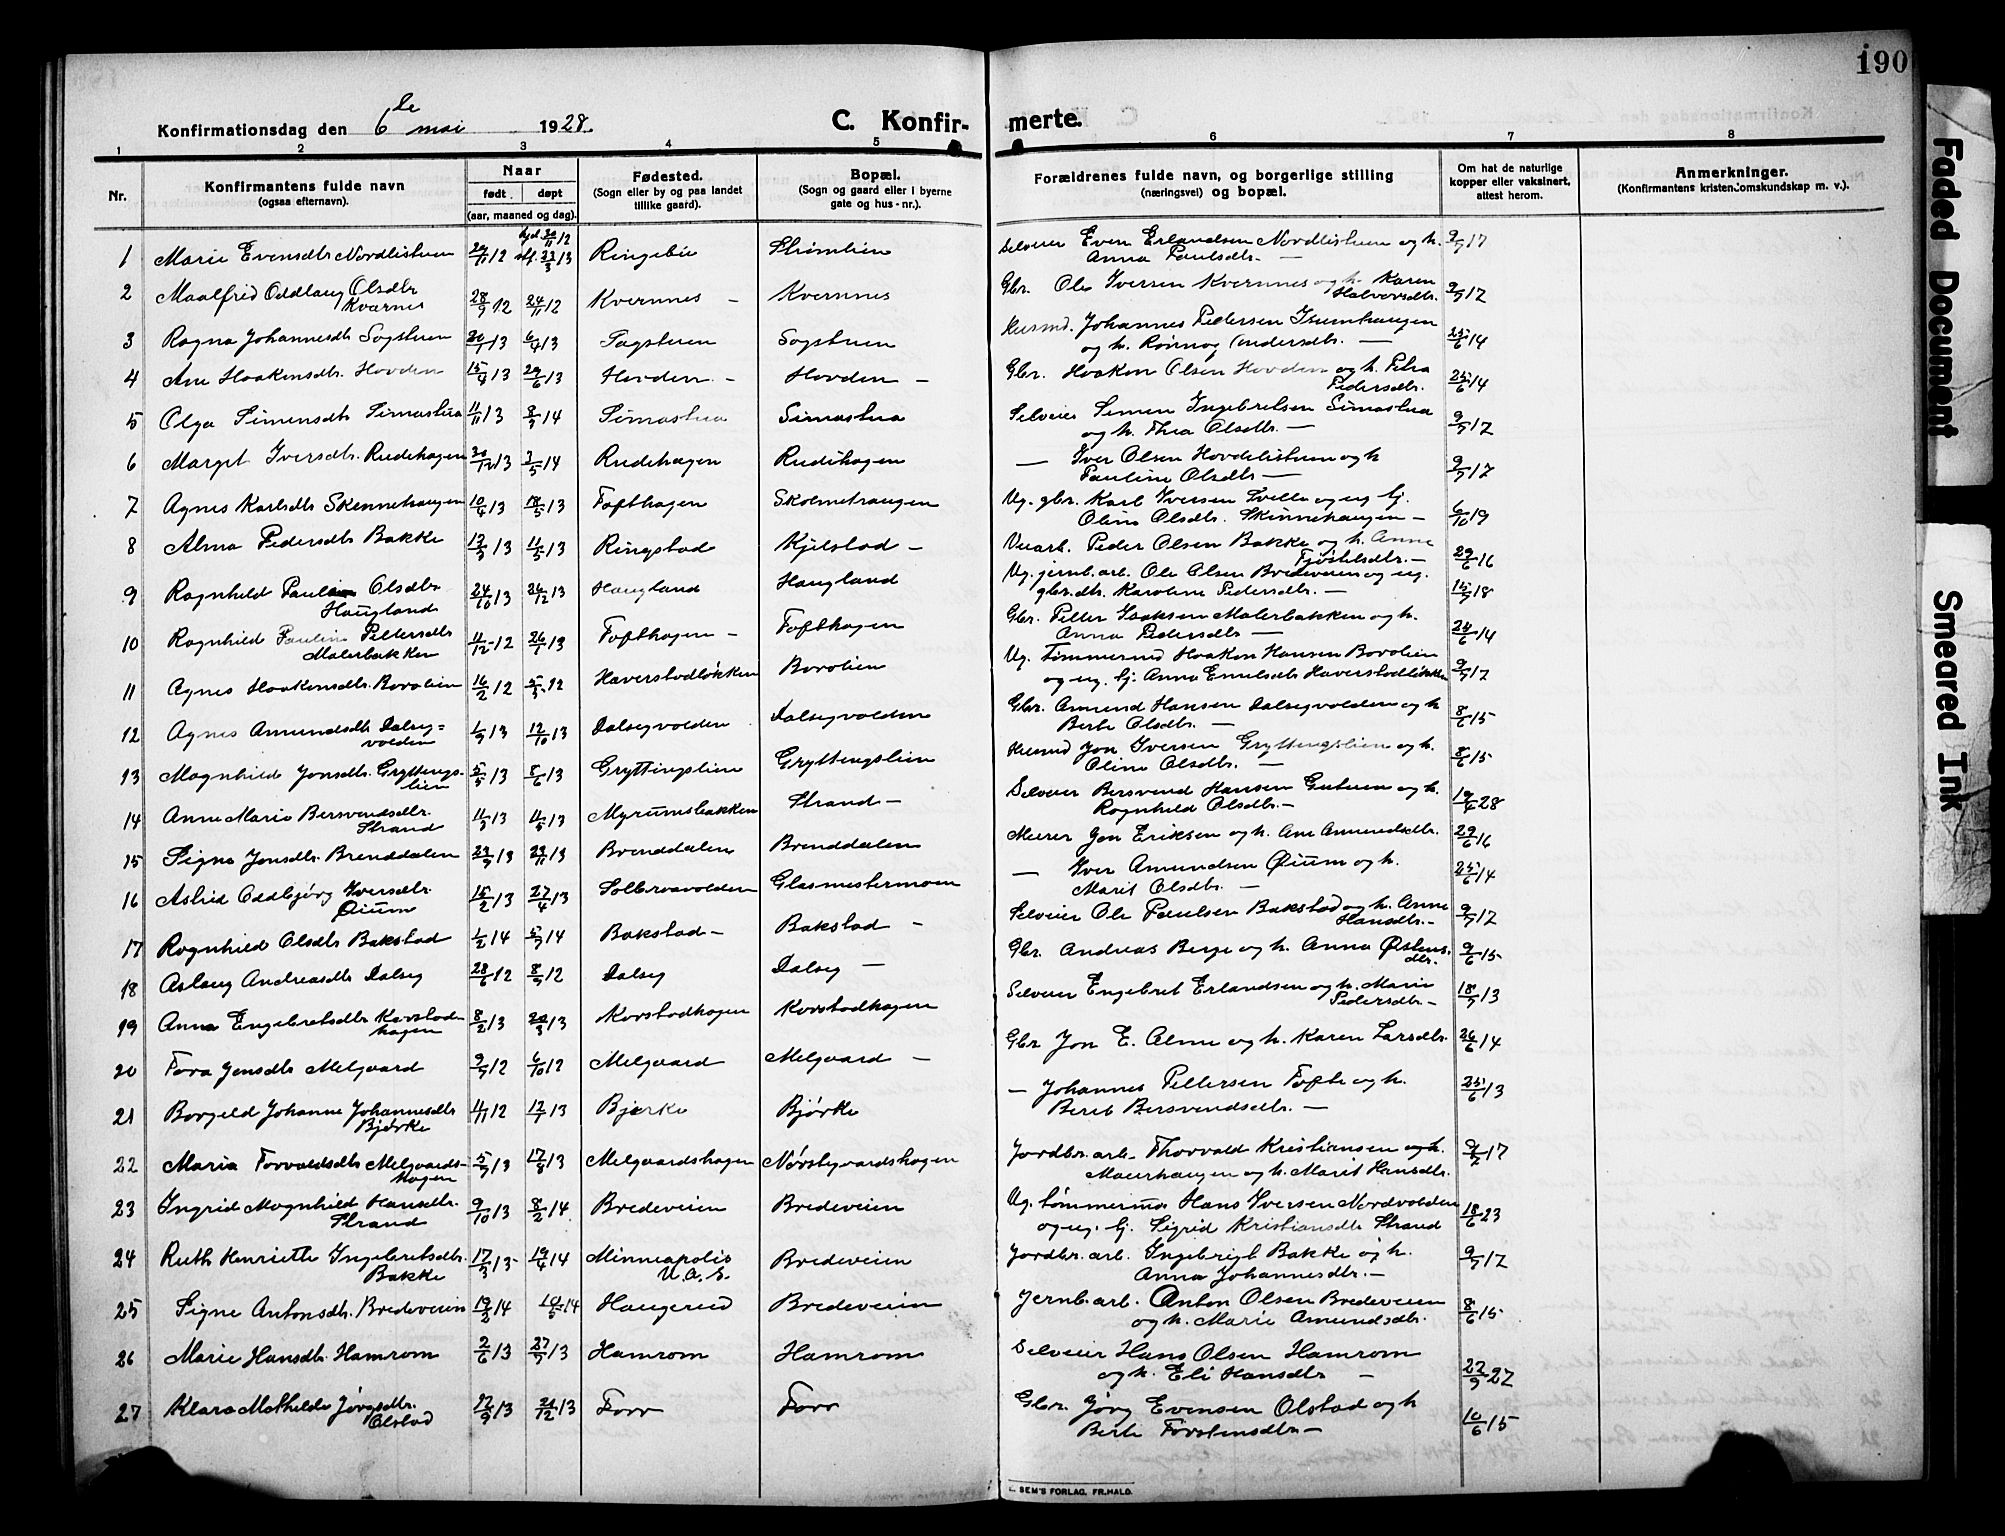 190
Konfirmationsdag den 6te mai 1928.
C. Konfirmerte.
1 2 3 4 5 6 7 8
Nr.
Konfirmantens fulde navn
(ogsaa efternavn).
Naar
født døpt
(aar, maaned og dag).
Fødested.
(Sogn eller by og paa landet
tillike gaard).
Bopæl.
(Sogn og gaard eller i byerne
gate og hus-nr.).
Forældrenes fulde navn, og borgerlige stilling
(næringsvei) og bopæl.
Om hat de naturlige
kopper eller vaksinert,
attest herom.
Anmerkninger.
(Konfirmantens kristendomskundskap m. v.).
1 Marie Evensdtr Nordlistuen 20/11 12 hjd. 30/11 12 stf. 23/3 13 Ringebu Strømlien Selveier Even Erlandsen Nordlistuen og h. 9/7 17
Anna Paulsdtr. —
2 Maalfrid Oddlaug Olsdtr Kvarnes 28/9 12 24/11 12 Kvernnes — Kvernnes Gbr. Ole Iversen Kvernnes og h. Karen Halvorsdtr. 9/7 17
3 Ragna Johannesdtr Sogstuen 20/1 13 6/4 13 Sogstuen Husmd. Johannes Pedersen
og h. Rønnog Andersdtr. — 25/6 14
4 Ane Haakensdtr. Hovden 15/4 13 29/6 13 Hovden — Hovden — Gbr. Haaken Olsen Hovden og h. Petra Pedersdtr. 25/6 14
5 Olga Simensdtr Simastua 11/11 13 8/3 14 Simastua Simastua Selveier Simen Ingebretsen Simastua
og h. Thea Olsdtr. — 9/7 17
6 Margit Iversdtr. Rudihagen 30/12 13 3/5 14 Rudihagen Rudihagen — Iver Olsen Hovdelistuen og h
Pauline Olsdtr — 9/7 17
7 Agnes Karlsdtr Skennehaugen 10/4 13 18/5 13 Tofthagen Ug. gbr. Karl Iversen og ug. tj.
Oline Olsdtr. Skinnehaugen — 6/10 19
8 Alma Pedersdtr Bakke 13/3 13 11/5 13 Ringstad Kjelstad — Veiarb. Peder Olsen Bakke og h. Anne — 29/6 16
9 Ragnhild Olsdtr Haugland 24/10 13 26/12 13 Haugland Haugland Ug. jernb.arb. Ole Olsen Bredeveien og ug.
gbr.dtr. Karoline Pedersdtr. — 18
10 Ragnhild Pauline Pettersdtr Malerbakken 4/12 12 26/1 13 Tofthagen — Tofthagen Gbr. Petter Isaksen Malerbakken og h.
Anna Pedersdtr — 24/6 14
11 Agnes Haakensdtr. Borolien 16/2 12 5/5 12 Haverstadløkken Borolien Ug. Tømmermd Haaken Hansen Borolien
og ug. tj. Anna Emilsdtr Haverstadløkken 9/7 17
12 Agnes Amundsdtr Dalseg= volden 1/9 13 12/10 13 Dalsegvolden Dalsegvolden Gbr. Amund Hansen Dalsegvolden og h
Berte Olsdtr. — 8/6 15
13 Magnhild Jonsdtr. Gryttings- lien 5/5 13 8/6 13 Gryttingslien Gryttingslien Husmd Jon Iversen Gryttingslien og h.
Oline Olsdtr. — 8/6 15
14 Anne Marie Bersvendsdtr. Strand 11/3 13 11/5 13 Myrumsbakken Strand — Selveier Bersvend Hansen og h.
Ragnhild Olsdtr. — 19/4 28
15 Signe Jonsdtr. Brenddalen 23/9 13 23/11 13 Brenddalen Brenddalen Murer Jon Eriksen og h. Ane Amundsdtr. 29/6 16
16 Astrid Oddbjørg Iversdtr. Øium 15/2 13 27/4 13 Solbraavolden Glasmestermoen — Iver Amundsen Øium og h.
Marit Olsdtr. — 25/6 14
17 Ragnhild Olsdtr Bakstad 1/2 14 5/7 14 Bakstad — Bakstad — Selveier Ole Paulsen Bakstad og h. Anne Hansdtr. — 9/7 17
18 Aslaug Andreasdtr Dalseg 28/6 12 8/9 12 Dalseg Dalseg — Gbr. Andreas Berge og h. Anna Østens- dtr. 9/6 15
19 Anna Engebretsdtr Korstad- hagen 8/2 13 20/3 13 Korstadhagen Korstadhagen Selveier Engebret Erlandsen og h. Marie Pedersdtr. — 18/7 13
20 Tora Jonsdtr Melgaard 9/7 12 6/10 12 Melgaard Melgaard — Gbr Jon E. Alme og h. Karen Larsdtr. 26/6 14
21 Borgild Johanne Johannesdtr Bjørke 4/11 12 12/1 13 Bjørke Bjørke — Johannes Pettersen Tofte og h.
Berit Bersvendsdtr. — 25/6 13
22 Maria Torvaldsdtr Melgaards- hagen 5/7 13 17/8 13 Melgaardshagen Nørstegaardshagen Jordbr.arb. Thorvald Kristiansen
Maurhaugen og h. Marit Hansdtr. 9/7 17
23 Ingrid Magnhild Hansdtr. Strand 9/10 13 8/2 14 Bredeveien Bredeveien Ug. tømmermd Hans Iversen Nordvolden
og ug. tj. Sigrid Kristiansdtr Strand 18/6 23
24 Ruth Henriette Ingebretsdtr. Bakke 17/3 13 19/4 14 Minneapolis U.A.S. Bredeveien Jordbr.arb. Ingebrigt Bakke og h.
Anna Johannesdtr. — 9/7 17
25 Signe Antonsdtr. Bredeveien 19/2 14 14 Haugerud Bredeveien Jernb.arb. Anton Olsen Bredeveien
og h. Marie Amundsdtr. 8/6 15
26 Marie Hansdtr. Hamrom 2/6 13 27/7 13 Hamrom Hamrom Selveier Hans Olsen Hamrom
og h. Eli Hansdtr — 22/9 27
27 Klara Mathilde Jørgsdtr. Olstad 17/9 13 21/12 13 Forr Forr Gbr. Jørg Evensen Olstad og h
Berte Torstensdtr — 10/6 15
SEM'S FORLAG, FR.HALD.
Faded Document
Smeared Ink